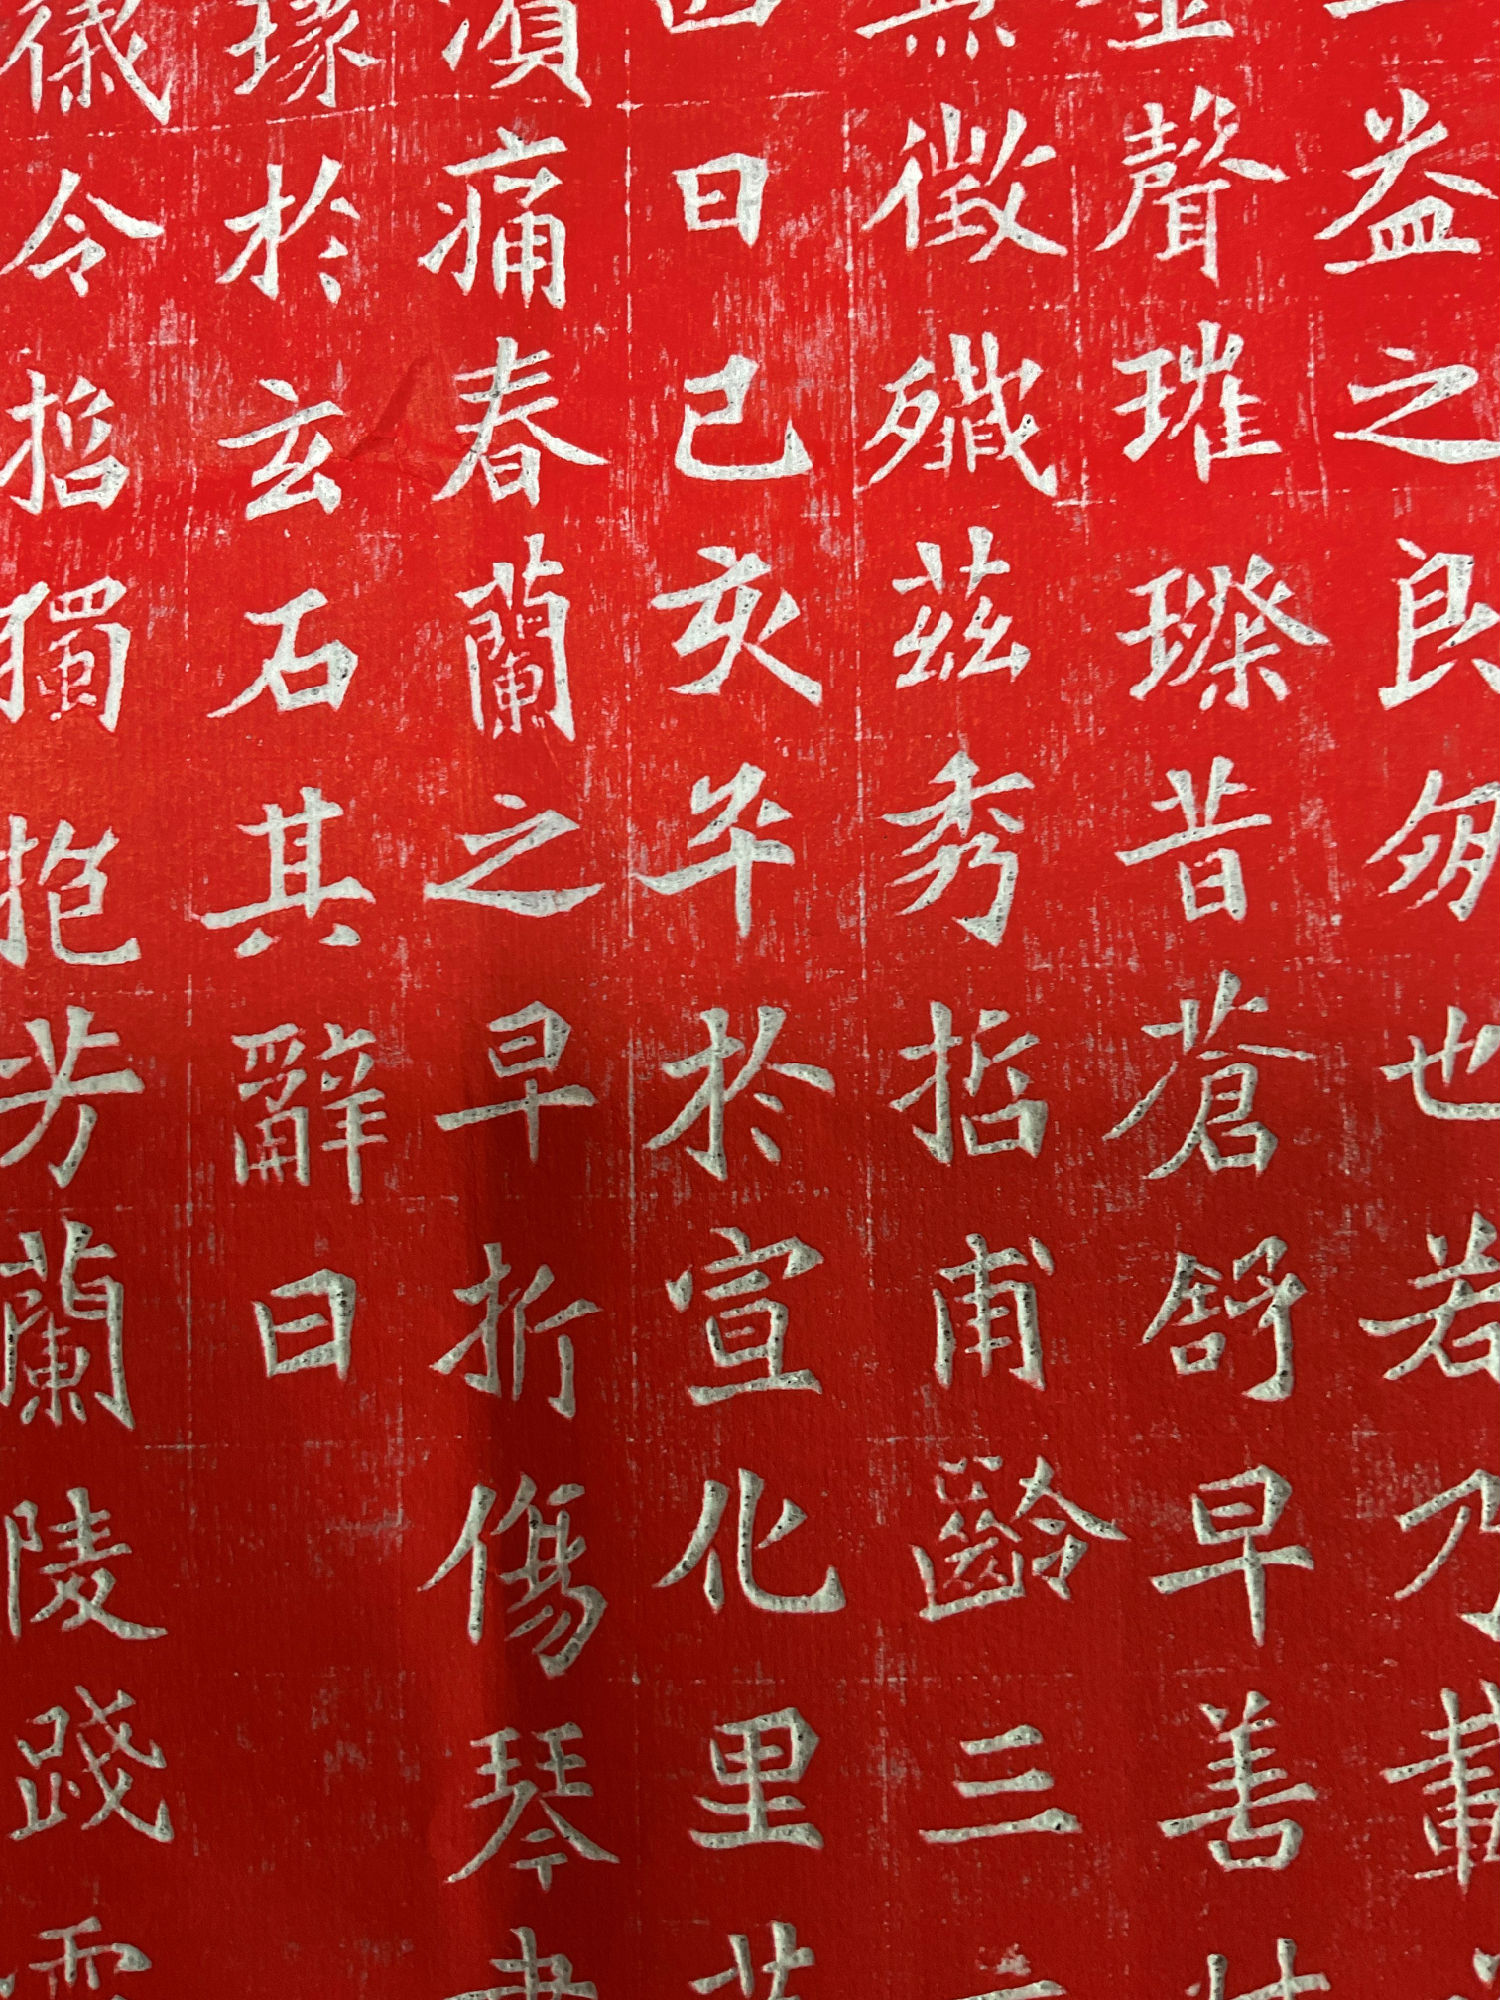 益之良朋也若乃載
聲璀璨昔蒼舒早善
無徵殲茲秀哲甫齡三
日己亥卒於宣化里
痛春蘭之早折傷琴
瑑於玄石其辭曰
徽令哲獨抱芳蘭陵踐